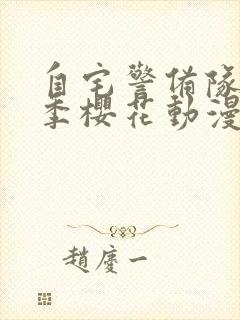 自宅警備隊
季櫻花動漫
趙慶一